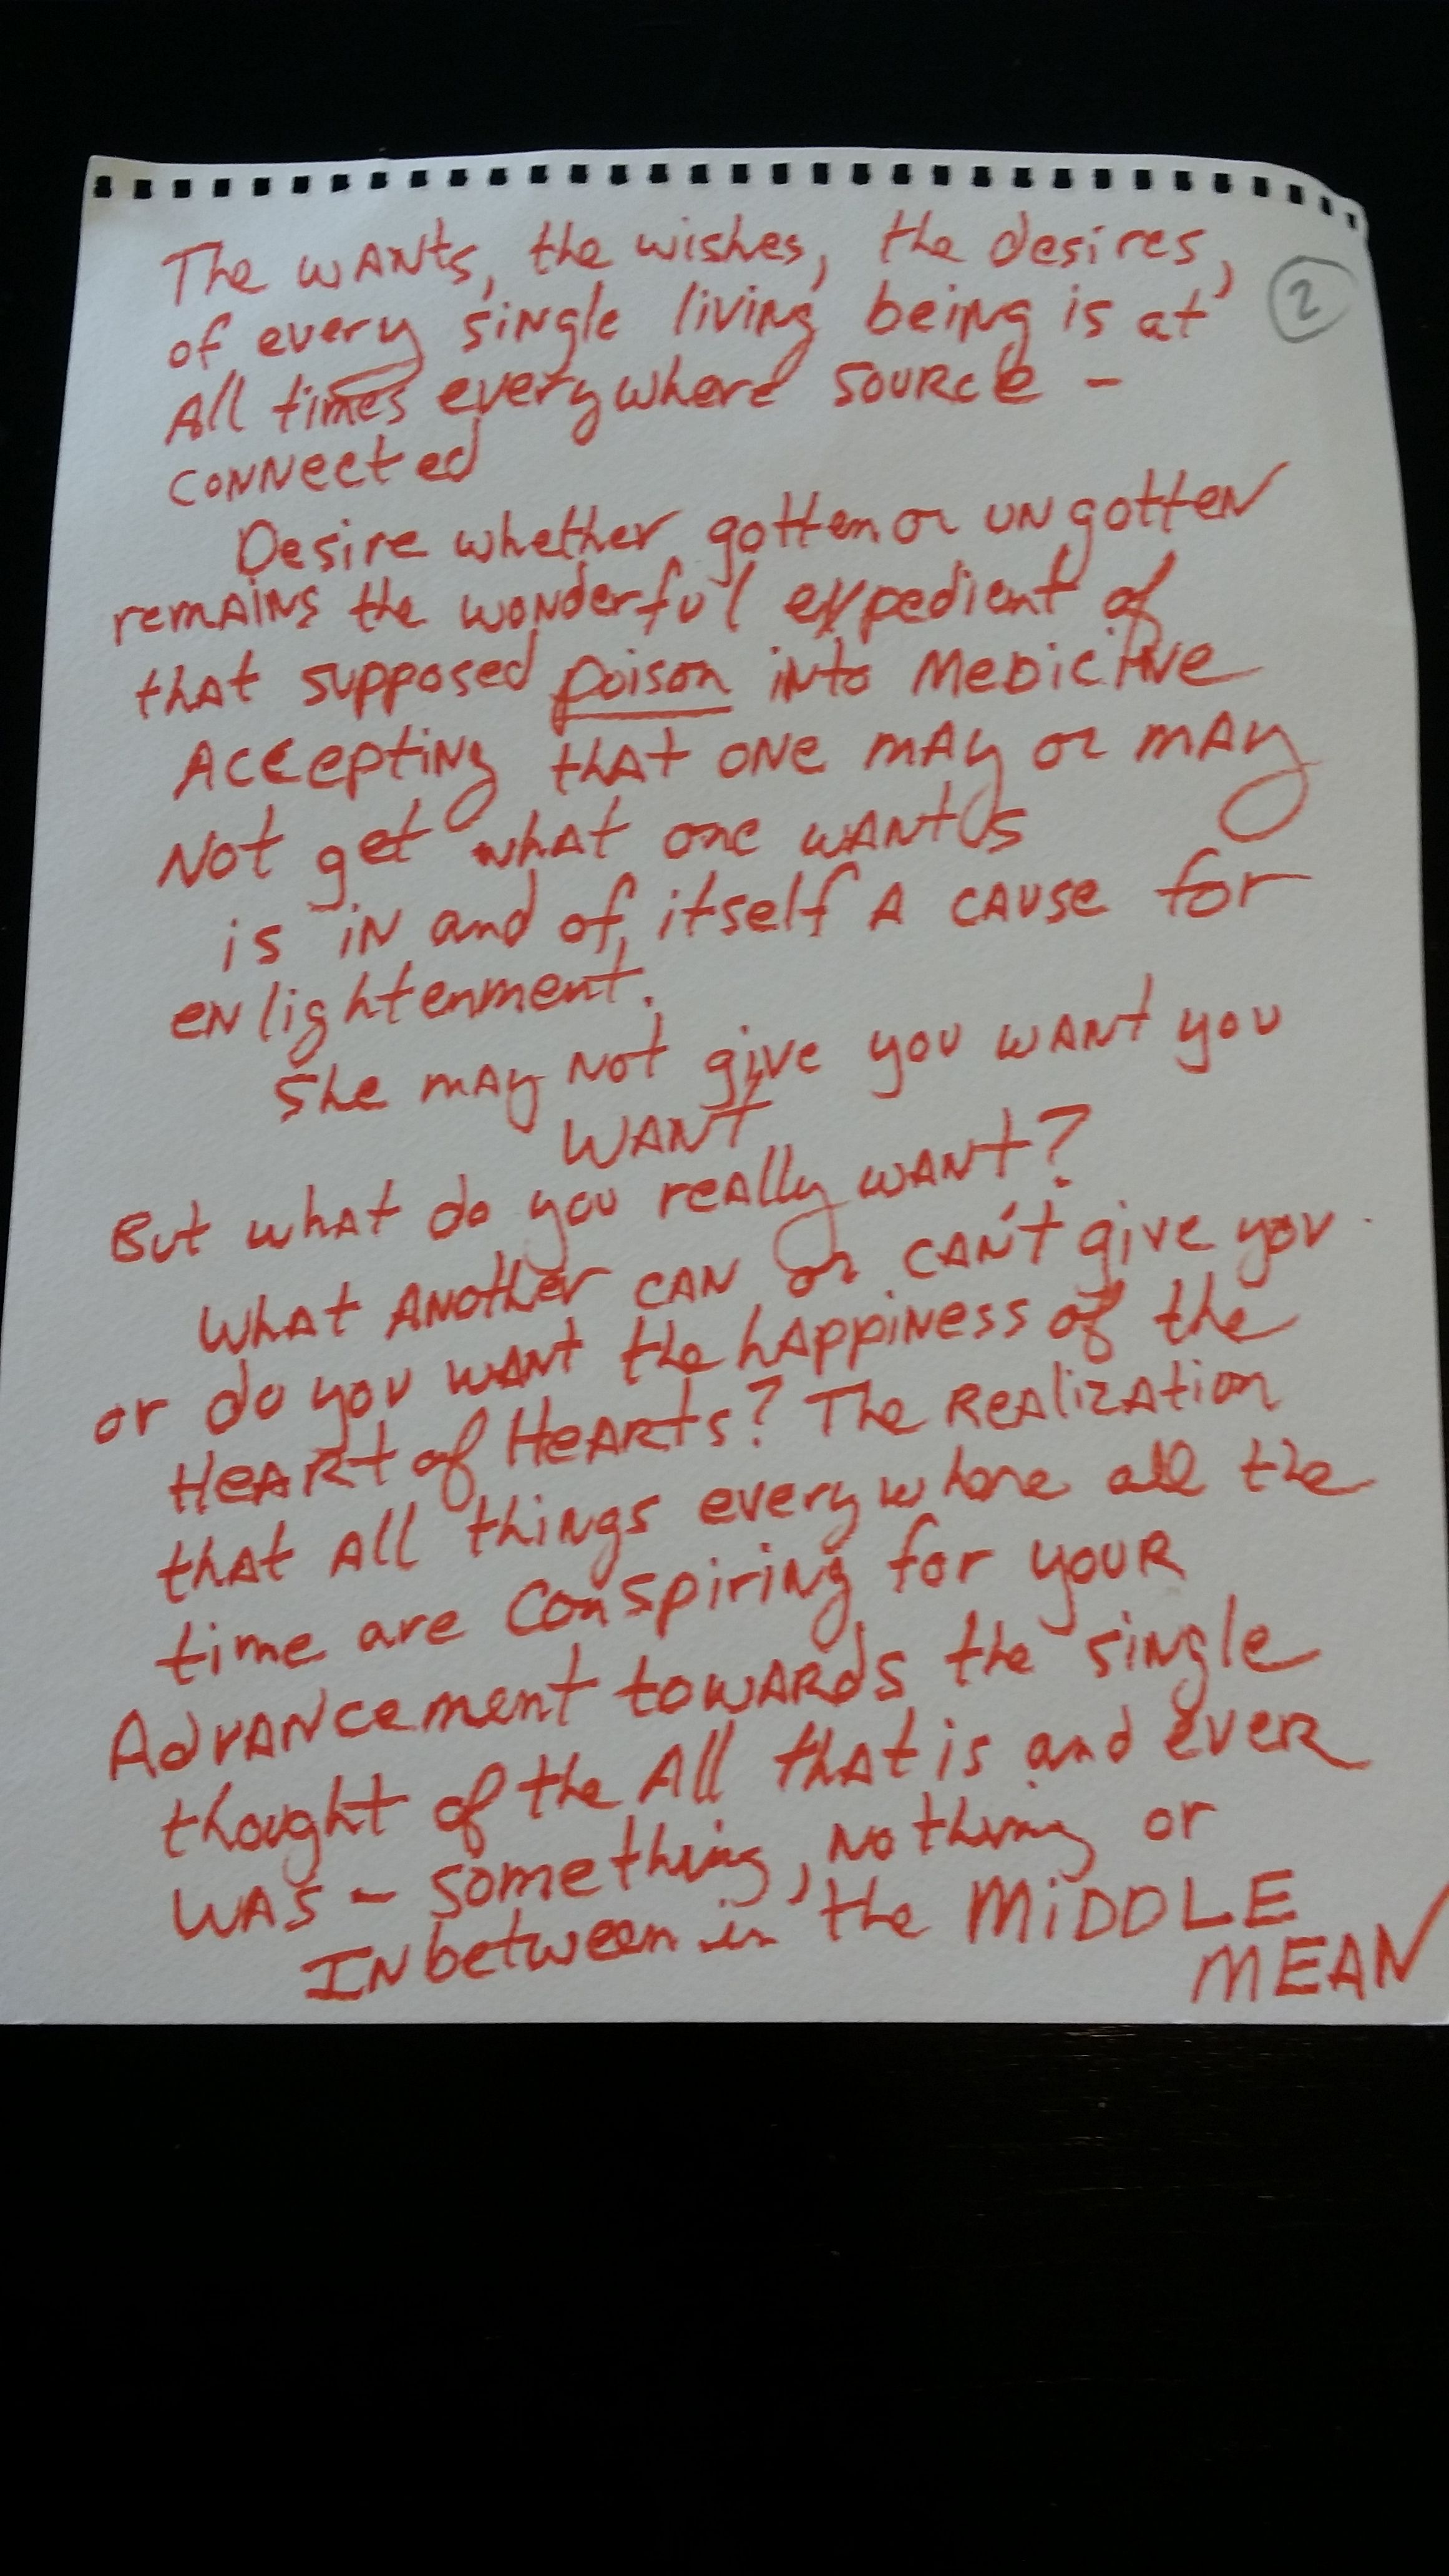 The wANts, the wishes, the desires,
2
of every single living being is at
All times everywhere source -
connected
Desire whether gotten or ungotten
remains the wonderful expedient of
that supposed poison into Medicine
Accepting that one may or may
Not get what one wants
is in and of itself A cause for
enlightenment.
She may not give you want you
WANT
But what do you really want?
What Another can or can't give you
or do you want the happiness of the
Heart of Hearts? The Realization
that All things everywhere all the
time are Conspiring for your
Advancement towards the single
thought of the All that is and ever
was - something, nothing or
Inbetween in the MIDDLE
MEAN